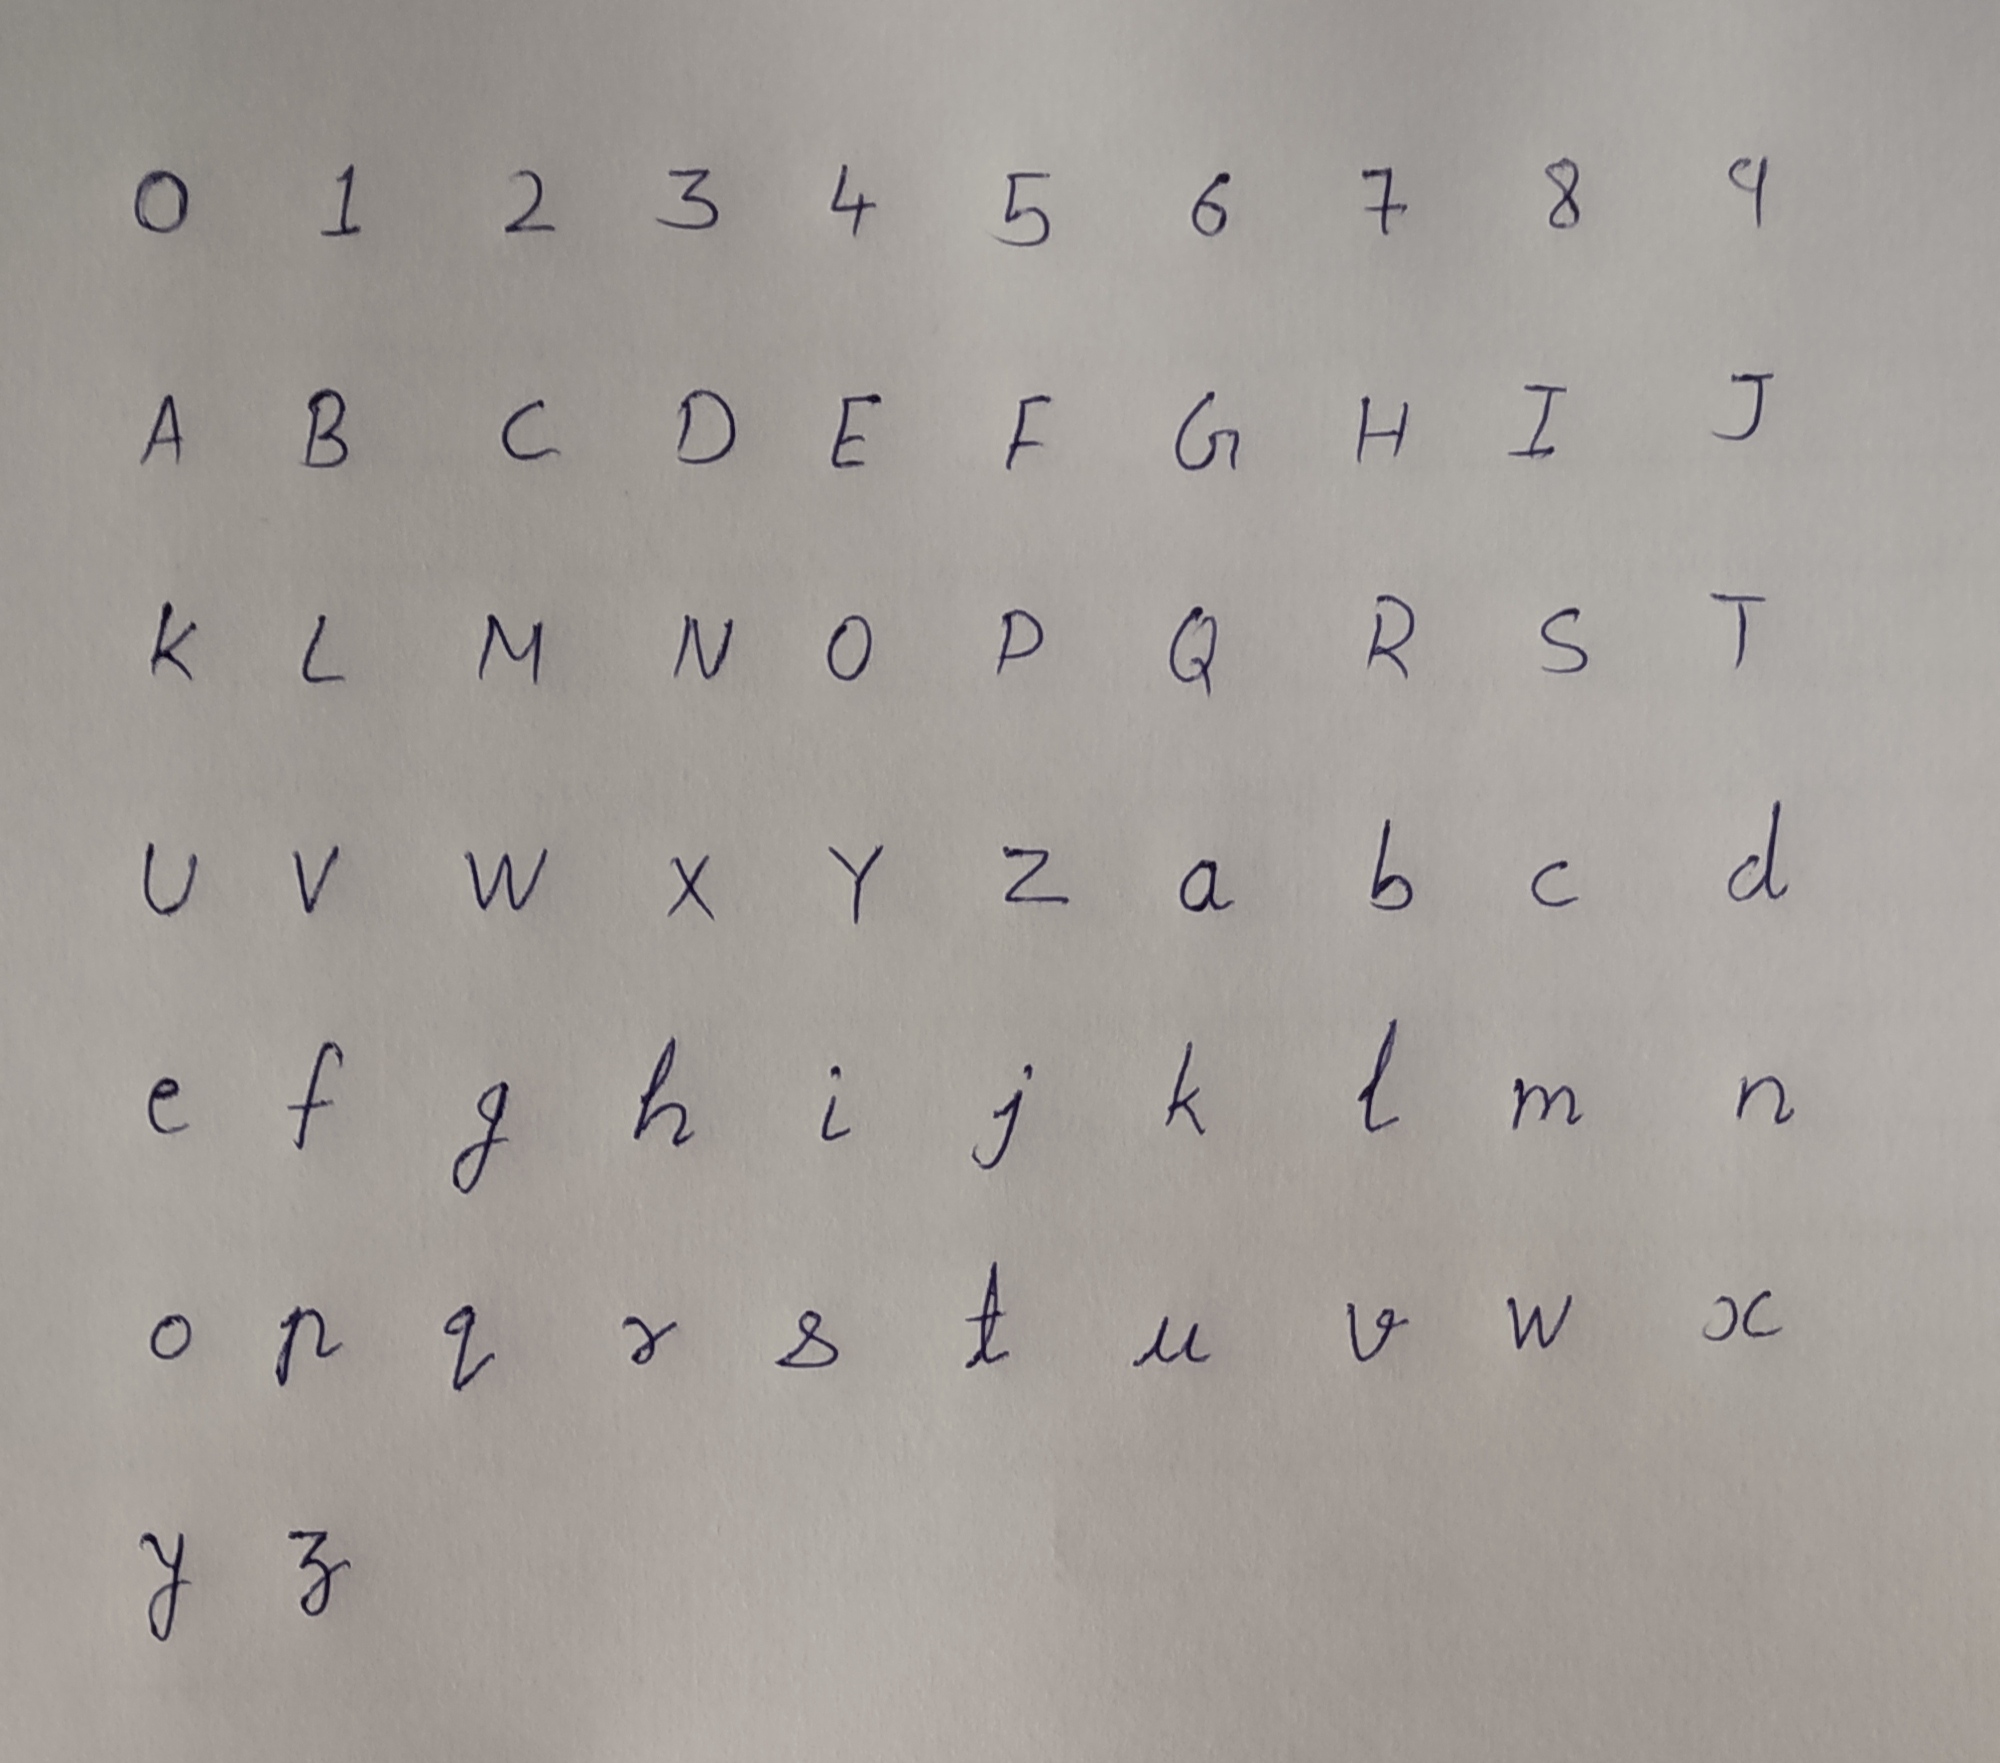 0 1 2 3 4 5 6 7 8 9
A B C D E F G H I J
K L M N O P Q R S T
U V W X Y Z a b c d
e f g h i j k l m n
o p q r s t u v w x
y z